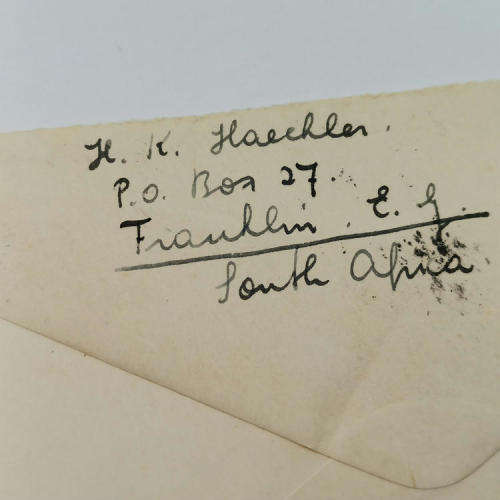 H. K. Haechler.
P.O. Box 27.
Franklin. E. G.
South Africa